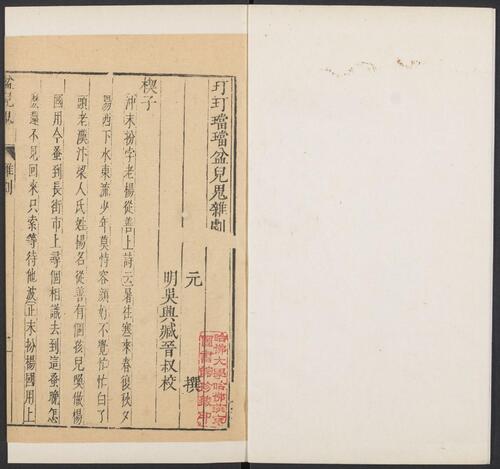 玎玎璫璫盆兒鬼雜劇
元 撰
明吳興臧晉叔校
楔子
沖末扮孛老楊從善上詩云暑往寒來春復秋夕
陽西下水東流少年莫恃容顏好不覺忙忙白了
頭老漢汴梁人氏姓楊名從善有個孩兒喚做楊
國用今蚤到長街市上尋個相識去到這蚤晚怎
麽還不見回來只索等待他波正末扮楊國用上
盆兒鬼 雜劇 一
哈佛大學哈佛燕京
圖書館珍藏印